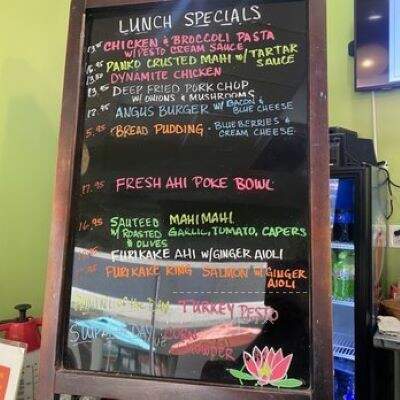 LUNCH SPECIALS
CHICKEN & BROCCOLI PASTA
W/PESTO CREAM SAUCE
PANKO CRUSTED MAHI W/ TARTAR
SAUCE
DYNAMITE CHICKEN
DEEP FRIED PORK CHOP
W/ ONIONS & MUSHROOMS
12.95 ANGUS BURGER W/ BACON &
BLUE CHEESE
5.95 BREAD PUDDING - BLUEBERRIES &
CREAM CHEESE
17.95 FRESH AHI POKE BOWL
16.95 SAUTEED MAHI MAHI
W/ ROASTED GARLIC, TOMATO, CAPERS
& OLIVES
FURIKAKE AHI W/GINGER AIOLI
FURIKAKE KING SALMON W/ GINGER
AIOLI
TURKEY PESTO
SOUP DAY CORN
CHOWDER